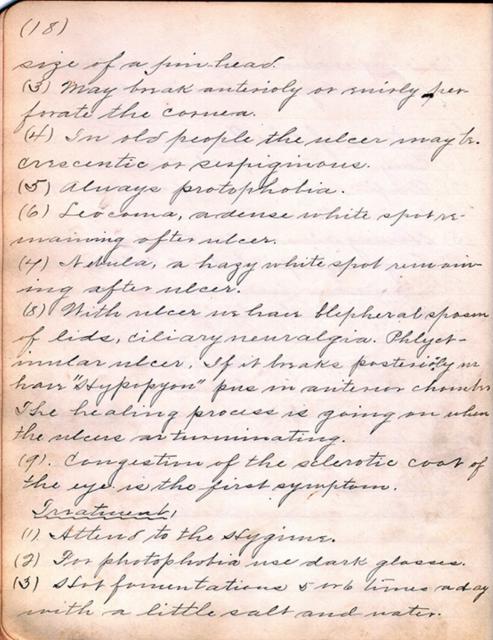 (18)
size of a pin-head.
(3) May break anterioly or entirly per-
forate the cornea.
(4) In old people the ulcer may be
crescentic or serpiginous.
(5) Always protophobia.
(6) Leocoma, a dense white spot re-
maining after ulcer.
(7) Nebula, a hazy white spot remain-
ing after ulcer.
(8) With ulcer we have blepheral spasm
of lids, ciliary neuralgia. Phlyct-
inular ulcer. If it breaks posterioly we
have "Hypopyon" pus in anterior chamber
The healing process is going on when
the ulcers are
(9). Congestion of the sclerotic coat of
the eye is the first symptom.
Treatment,
(1) Attend to the Hygine.
(2) For photophobia use dark glasses.
(3) Hot fomentations 5 or 6 times a day
with a little salt and water.